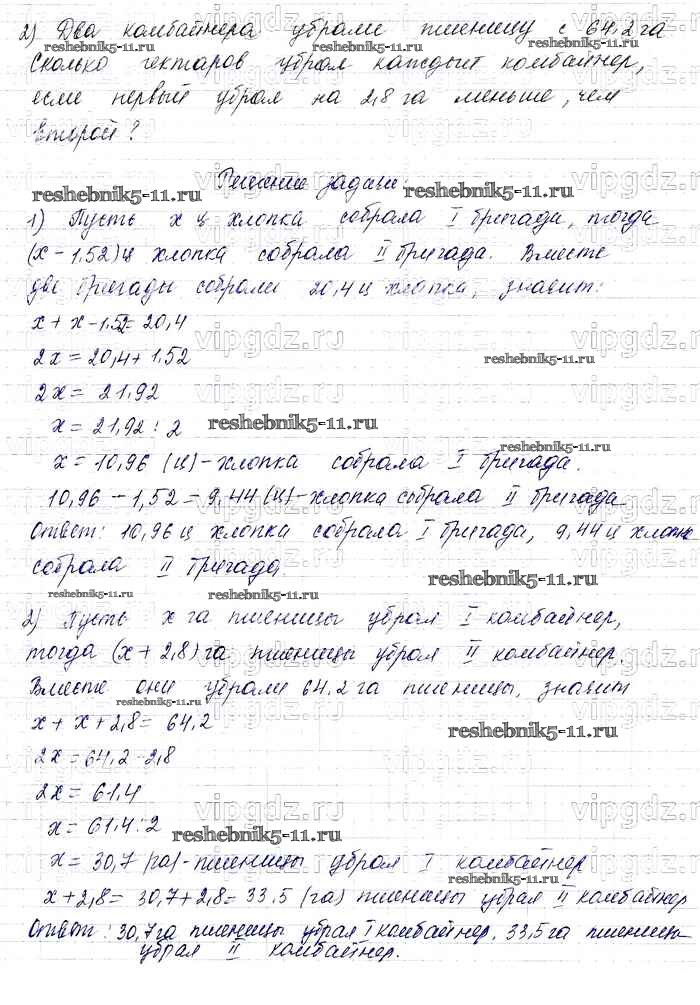 2) Два комбайнера убрали пшеницу с 64,2 га
Сколько гектаров убрал каждый комбайнер,
если первый убрал на 2,8 га меньше, чем
второй?
Решение задачи:
1) Пусть x ц хлопка собрала I бригада, тогда
(x - 1,52) ц хлопка собрала II бригада. Вместе
две бригады собрали 20,4 ц хлопка, значит:
x + x - 1,52 = 20,4
2x = 20,4 + 1,52
2x = 21,92
x = 21,92 : 2
x = 10,96 (ц) - хлопка собрала I бригада.
10,96 - 1,52 = 9,44 (ц) - хлопка собрала II бригада
Ответ: 10,96 ц хлопка собрала I бригада, 9,44 ц хлопка
собрала II бригада.
2) Пусть x га пшеницы убрал I комбайнер,
тогда (x + 2,8) га пшеницы убрал II комбайнер.
Вместе они убрали 64,2 га пшеницы, значит
x + x + 2,8 = 64,2
2x = 64,2 - 2,8
2x = 61,4
x = 61,4 : 2
x = 30,7 (га) - пшеницы убрал I комбайнер
x + 2,8 = 30,7 + 2,8 = 33,5 (га) пшеницы убрал II комбайнер
Ответ: 30,7 га пшеницы убрал I комбайнер, 33,5 га пшеницы
убрал II комбайнер.
reshebnik5-11.ru
vipgdz.ru